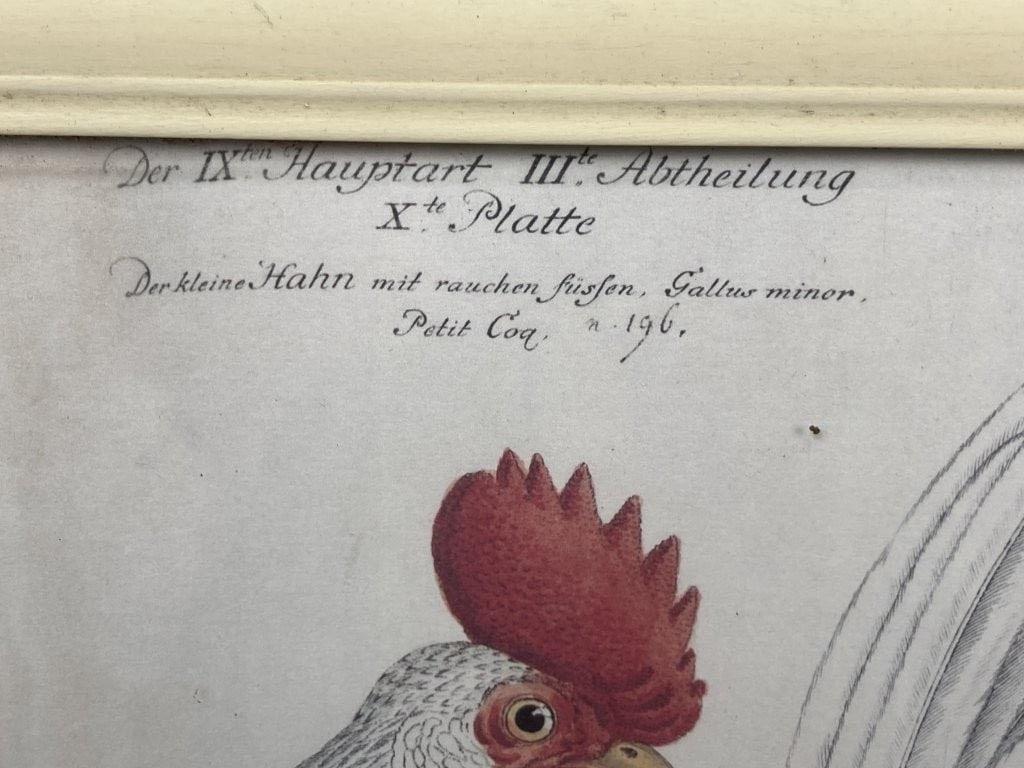 Der IX.ten Hauptart III.te Abtheilung
X.te Platte
Der kleine Hahn mit rauchen füſsen, Gallus minor,
Petit Coq, n. 196.